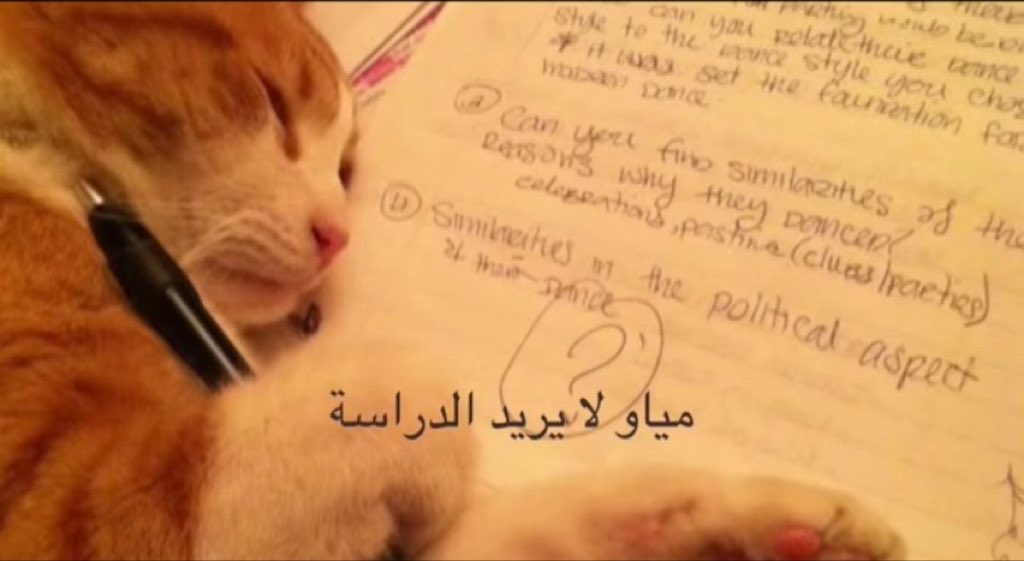 can you relate their dance
style to the dance style you chos
* it was set the foundation for
modern dance
a) Can you find similarities of the
Reasons why they danced?
celebrations, pastime (clubs/parties)
b) Similarities in the political aspect
of their dance
?
مياو لا يريد الدراسة